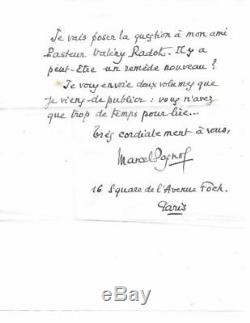 Je vais poser la question à mon ami
Pasteur Valéry Radot. Il y a
peut-être un remède nouveau ?
Je vous envoie deux volumes que
je viens de publier : vous n'avez
que trop de temps pour lire...
Très cordialement à vous,
Marcel Pagnol
16 Square de l'Avenue Foch.
Paris
ebay